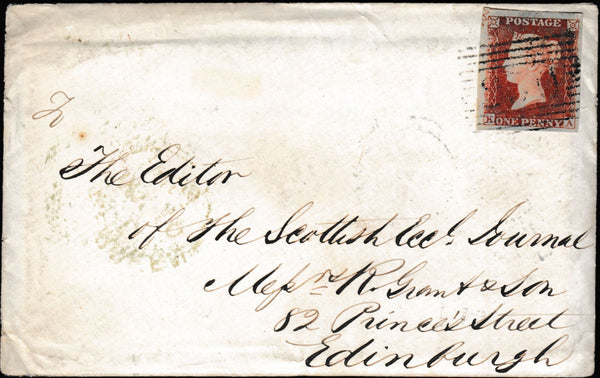 POSTAGE
K ONE PENNY A
The Editor
of The Scottish Eccl. Journal
Messrs R. Grant & Son
82 Prince's Street
Edinburgh